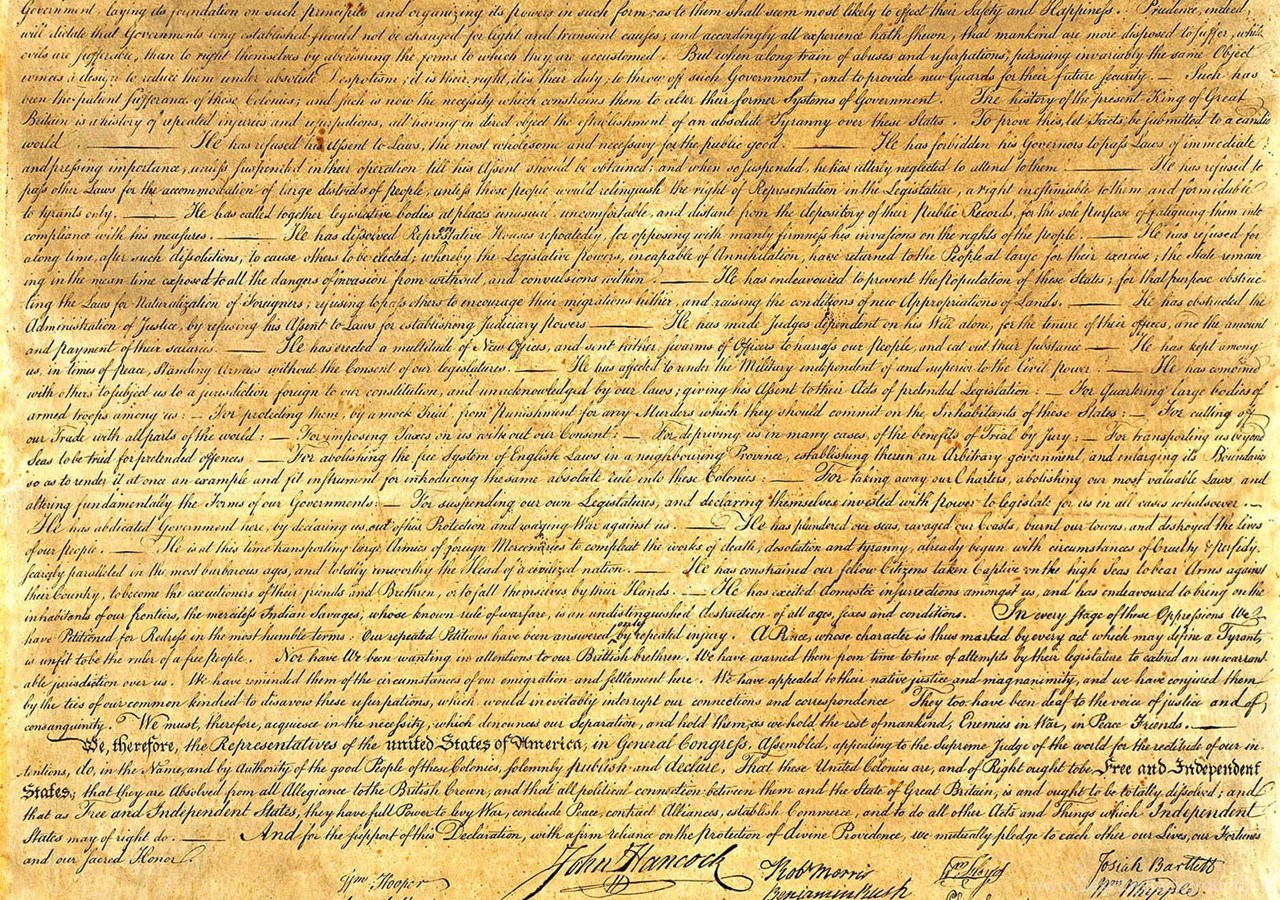 Government, laying its foundation on such principles and organizing its powers in such form, as to them shall seem most likely to effect their Safety and Happiness. Prudence, indeed,
will dictate that Governments long established should not be changed for light and transient causes; and accordingly all experience hath shewn, that mankind are more disposed to suffer, while
evils are sufferable, than to right themselves by abolishing the forms to which they are accustomed. But when a long train of abuses and usurpations, pursuing invariably the same Object
evinces a design to reduce them under absolute Despotism, it is their right, it is their duty, to throw off such Government, and to provide new Guards for their future security. — Such has
been the patient sufferance of these Colonies; and such is now the necessity which constrains them to alter their former Systems of Government. The history of the present King of Great
Britain is a history of repeated injuries and usurpations, all having in direct object the establishment of an absolute Tyranny over these States. To prove this, let Facts be submitted to a candid
world. — He has refused his Assent to Laws, the most wholesome and necessary for the public good. — He has forbidden his Governors to pass Laws of immediate
and pressing importance, unless suspended in their operation till his Assent should be obtained; and when so suspended, he has utterly neglected to attend to them. — He has refused to
pass other Laws for the accommodation of large districts of people, unless those people would relinquish the right of Representation in the Legislature, a right inestimable to them and formidable
to tyrants only. — He has called together legislative bodies at places unusual, uncomfortable, and distant from the depository of their Public Records, for the sole purpose of fatiguing them into
compliance with his measures. — He has dissolved Representative Houses repeatedly, for opposing with manly firmness his invasions on the rights of the people. — He has refused for
a long time, after such dissolutions, to cause others to be elected; whereby the Legislative powers, incapable of Annihilation, have returned to the People at large for their exercise; the State remain
ing in the mean time exposed to all the dangers of invasion from without, and convulsions within. — He has endeavoured to prevent the population of these States; for that purpose obstruc
ting the Laws for Naturalization of Foreigners; refusing to pass others to encourage their migrations hither, and raising the conditions of new Appropriations of Lands. — He has obstructed the
Administration of Justice, by refusing his Assent to Laws for establishing Judiciary powers. — He has made Judges dependent on his Will alone, for the tenure of their offices, and the amount
and payment of their salaries. — He has erected a multitude of New Offices, and sent hither swarms of Officers to harass our people, and eat out their substance. — He has kept among
us, in times of peace, Standing Armies without the Consent of our legislatures. — He has affected to render the Military independent of and superior to the Civil power. — He has combined
with others to subject us to a jurisdiction foreign to our constitution, and unacknowledged by our laws; giving his Assent to their Acts of pretended Legislation: — For Quartering large bodies of
armed troops among us: — For protecting them, by a mock Trial, from punishment for any Murders which they should commit on the Inhabitants of these States: — For cutting off
our Trade with all parts of the world: — For imposing Taxes on us without our Consent: — For depriving us in many cases, of the benefits of Trial by Jury: — For transporting us beyond
Seas to be tried for pretended offences — For abolishing the free System of English Laws in a neighbouring Province, establishing therein an Arbitrary government, and enlarging its Boundaries
so as to render it at once an example and fit instrument for introducing the same absolute rule into these Colonies: — For taking away our Charters, abolishing our most valuable Laws, and
altering fundamentally the Forms of our Governments: — For suspending our own Legislatures, and declaring themselves invested with power to legislate for us in all cases whatsoever. —
He has abdicated Government here, by declaring us out of his Protection and waging War against us. — He has plundered our seas, ravaged our Coasts, burnt our towns, and destroyed the lives
of our people. — He is at this time transporting large Armies of foreign Mercenaries to compleat the works of death, desolation and tyranny, already begun with circumstances of Cruelty & perfidy
scarcely paralleled in the most barbarous ages, and totally unworthy the Head of a civilized nation. — He has constrained our fellow Citizens taken Captive on the high Seas to bear Arms against
their Country, to become the executioners of their friends and Brethren, or to fall themselves by their Hands. — He has excited domestic insurrections amongst us, and has endeavoured to bring on the
inhabitants of our frontiers, the merciless Indian Savages, whose known rule of warfare, is an undistinguished destruction of all ages, sexes and conditions. In every stage of these Oppressions We
have Petitioned for Redress in the most humble terms: Our repeated Petitions have been answered only by repeated injury. A Prince, whose character is thus marked by every act which may define a Tyrant,
is unfit to be the ruler of a free people. Nor have We been wanting in attentions to our Brittish brethren. We have warned them from time to time of attempts by their legislature to extend an unwarrant
able jurisdiction over us. We have reminded them of the circumstances of our emigration and settlement here. We have appealed to their native justice and magnanimity, and we have conjured them
by the ties of our common kindred to disavow these usurpations, which, would inevitably interrupt our connections and correspondence They too have been deaf to the voice of justice and of
consanguinity. We must, therefore, acquiesce in the necessity, which denounces our Separation, and hold them, as we hold the rest of mankind, Enemies in War, in Peace Friends. —
We, therefore, the Representatives of the united States of America, in General Congress, Assembled, appealing to the Supreme Judge of the world for the rectitude of our in
tentions, do, in the Name, and by Authority of the good People of these Colonies, solemnly publish and declare, That these United Colonies are, and of Right ought to be Free and Independent
States; that they are Absolved from all Allegiance to the British Crown, and that all political connection between them and the State of Great Britain, is and ought to be totally dissolved; and
that as Free and Independent States, they have full Power to levy War, conclude Peace, contract Alliances, establish Commerce, and to do all other Acts and Things which Independent
States may of right do. — And for the support of this Declaration, with a firm reliance on the protection of divine Providence, we mutually pledge to each other our Lives, our Fortunes
and our sacred Honor.
Wm Hooper John Hancock Robt Morris Wm Floyd Josiah Bartlett
Benjamin Rush Wm Whipple